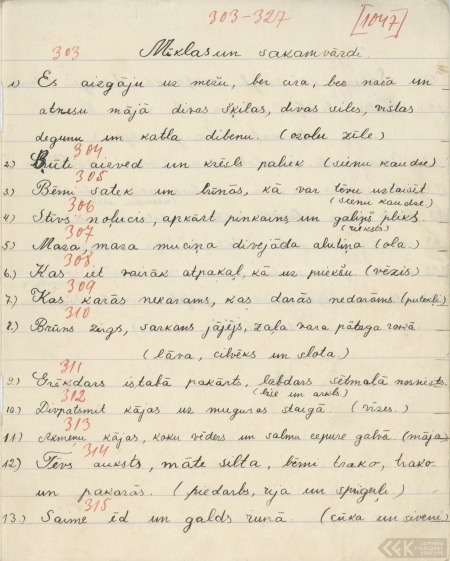 303-327 [1047]
303 Mīklas un sakamvārdi.
1) Es aizgāju uz mežu, bez cira, bez naža un
atnesu mājā divas šķilas, divas siles, vistas
degunu un katla dibenu. (ozolu zīle)
304
2.) Brūti aizved un krēsls paliek (sienu kaudze)
305
3) Bērni satek un brīnās, kā var tēvu uztaisīt
(sienu kaudze)
306
4) Stīvs noļucis, apkārt pinkains un galiņš pliks.
(rieksts)
307
5) Maza, maza muciņa divējāda alutiņa (ola.)
308
6.) Kas iet vairāk atpakaļ, kā uz priekšu. (vēzis)
309
7.) Kas karās nekarams, kas darās nedarāms. (putekļi)
310
8.) Brūns zirgs, sarkans jājējs, zaļa vara pātaga rokā.
(lāva, cilvēks un slota.)
311
9.) Grēkdars istabā pakārts, labdars sētmalā nosviests.
312
10.) Divpatsmit kājas uz muguras staigā. (vīzes.)
313
11.) Akmeņu kājas, koku vēders un salmu cepure galvā (māja)
314
12.) Tēvs auksts, māte silta, bērni trako, trako
un pakarās. (piedarbs, rija un spriguļi)
315
13.) Saime ēd un galds runā. (cūka un sivēni)
LATVIEŠU FOLKLORAS KRĀTUVE